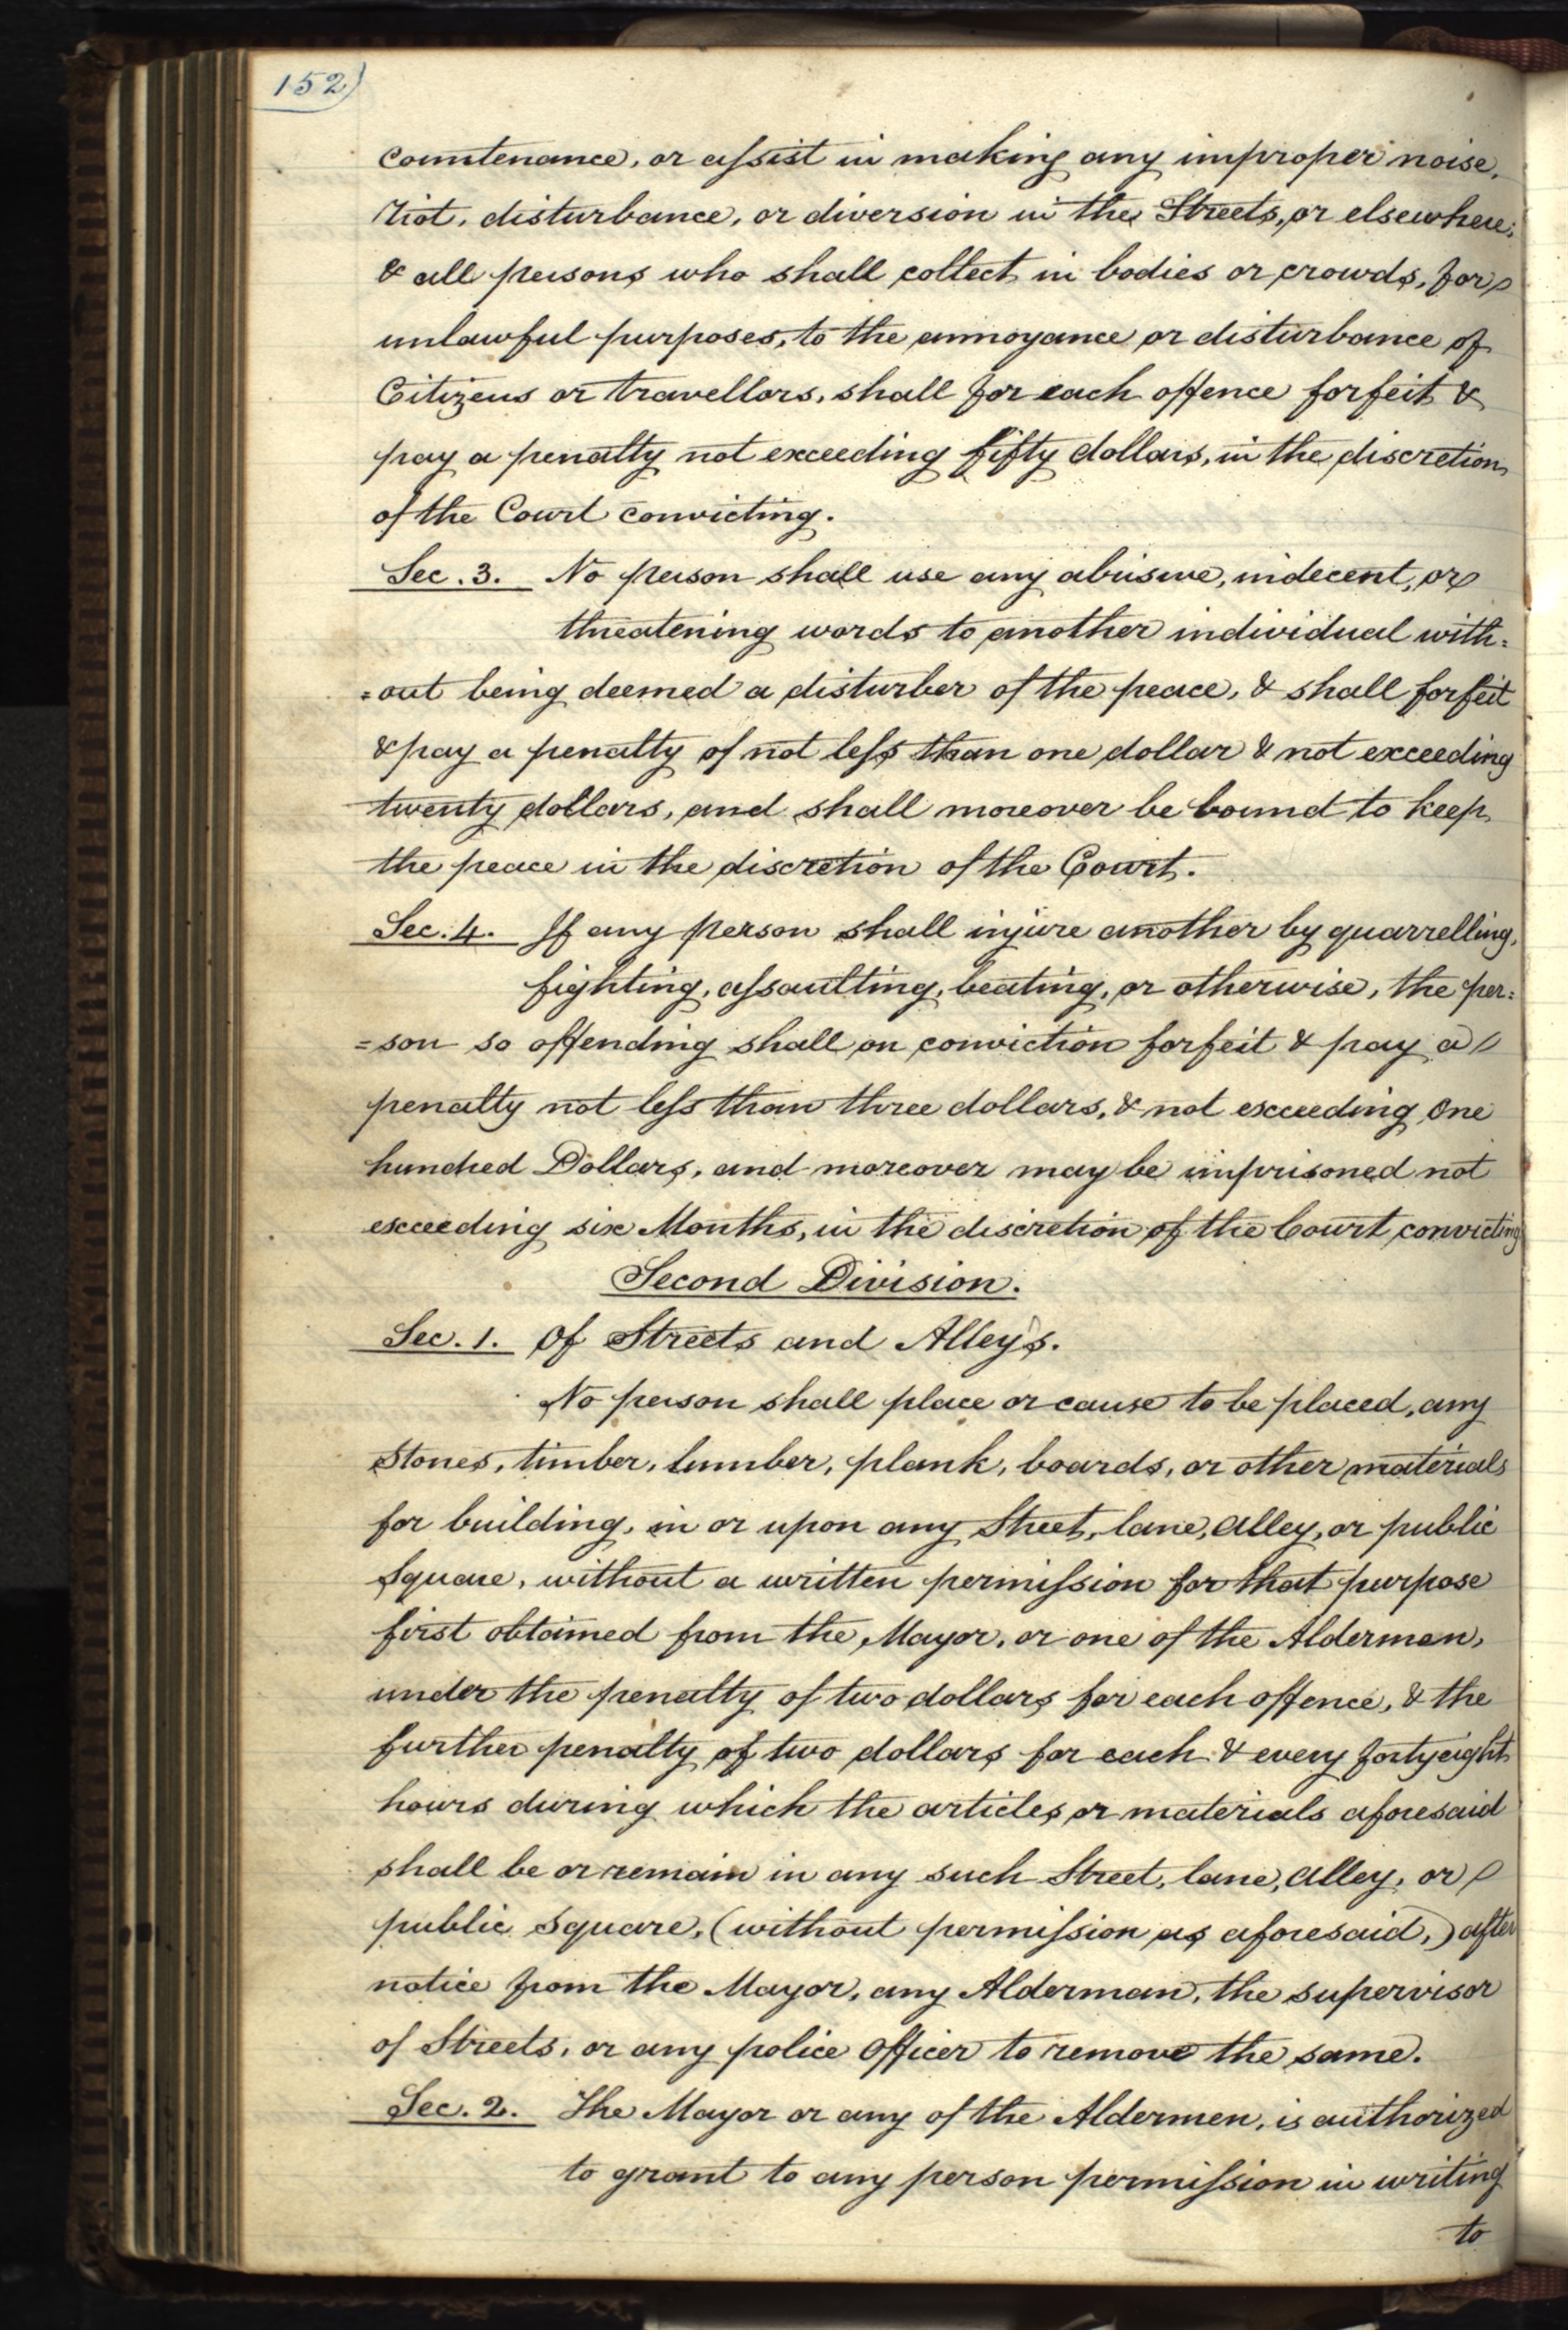 152)
countenance, or assist in making any improper noise,
riot, disturbance, or diversion in the Streets, or elsewhere;
& all persons who shall collect in bodies or crowds, for
unlawful purposes, to the annoyance or disturbance of
Citizens or travellors, shall for each offence forfeit &
pay a penalty not exceeding fifty dollars, in the discretion
of the Court convicting.
Sec. 3. No person shall use any abusive, indecent, or
threatening words to another individual with=
=out being deemed a disturber of the peace, & shall forfeit
& pay a penalty of not less than one dollar & not exceeding
twenty dollars, and shall moreover be bound to keep
the peace in the discretion of the Court.
Sec. 4. If any person shall injure another by quarrelling,
fighting, assaulting, beating, or otherwise, the per=
=son so offending shall on conviction forfeit & pay a
penalty not less than three dollars, & not exceeding One
hundred Dollars, and moreover may be imprisoned not
exceeding six Months, in the discretion of the Court convicting
Second Division.
Sec. 1. Of Streets and Alleys.
No person shall place or cause to be placed, any
Stones, timber, lumber, plank, boards, or other materials
for building, in or upon any Street, lane, Alley, or public
Square, without a written permission for that purpose
first obtained from the Mayor, or one of the Aldermen,
under the penalty of two dollars for each offence, & the
further penalty of two dollars for each & every fortyeight
hours during which the articles or materials aforesaid
shall be or remain in any such Street, lane, Alley, or
public Square, (without permission as aforesaid,) after
notice from the Mayor, any Alderman, the supervisor
of Streets, or any police Officer to remove the same.
Sec. 2. The Mayor or any of the Aldermen, is authorized
to grant to any person permission in writing
to